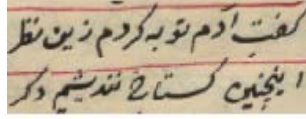 گفت آدم توبه کردم زین نظر
اینچنین گستاخ نندیشم دگر